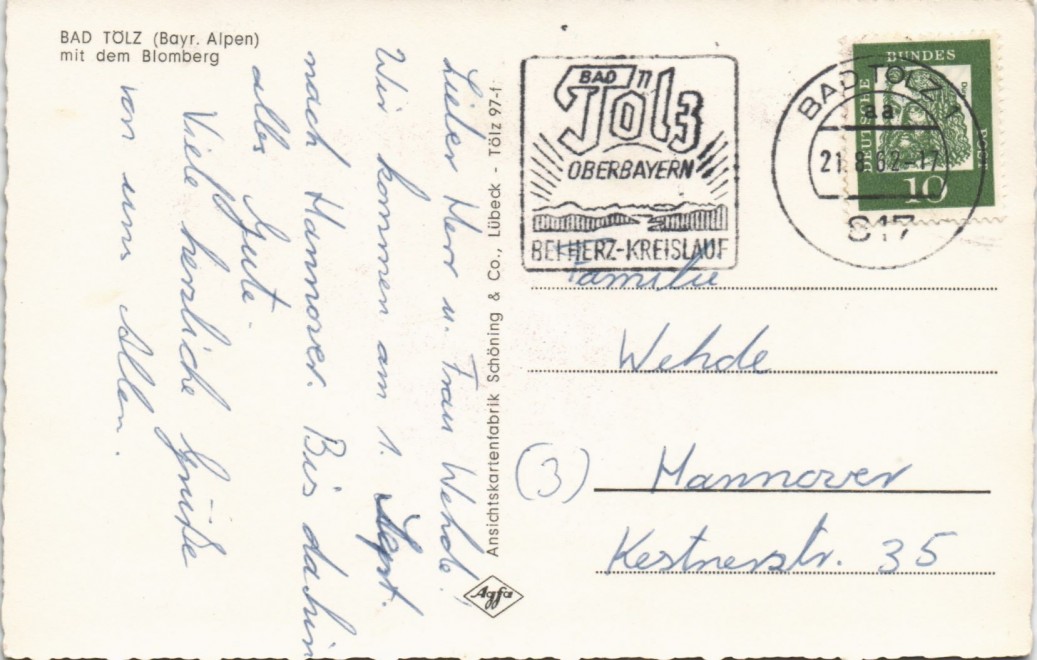 BAD TÖLZ (Bayr. Alpen)
mit dem Blomberg
Lieber Herr u. Frau Wehde!
Wir kommen am 1. Sept.
nach Hannover. Bis dahin
alles Gute.
Viele herzliche Grüße
von uns Allen.
Ansichtskartenfabrik Schöning & Co., Lübeck - Tölz 97-f
Agfa
BAD
Tölz
OBERBAYERN
BEI HERZ-KREISLAUF
BAD TÖLZ 1
aa
21.8.62-17
817
DEUTSCHE
BUNDES
POST
10
Familie
Wehde
(3) Hannover
Kestnerstr. 35